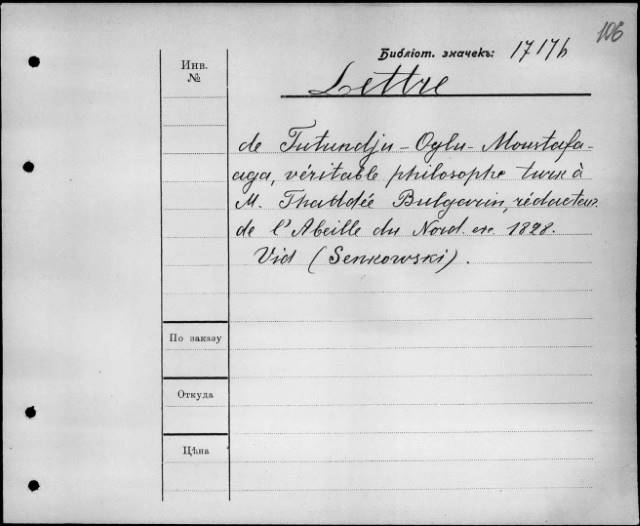 106
Библіот. значекъ: 17176
Инв.
№
Lettre
de Tutundju-Oglu-Moustafa-
aga, véritable philosophe turk à
M. Thaddée Bulgarin, rédacteur
de l'Abeille du Nord. etc. 1828.
Vid (Senkowski).
По заказу
Откуда
Цѣна